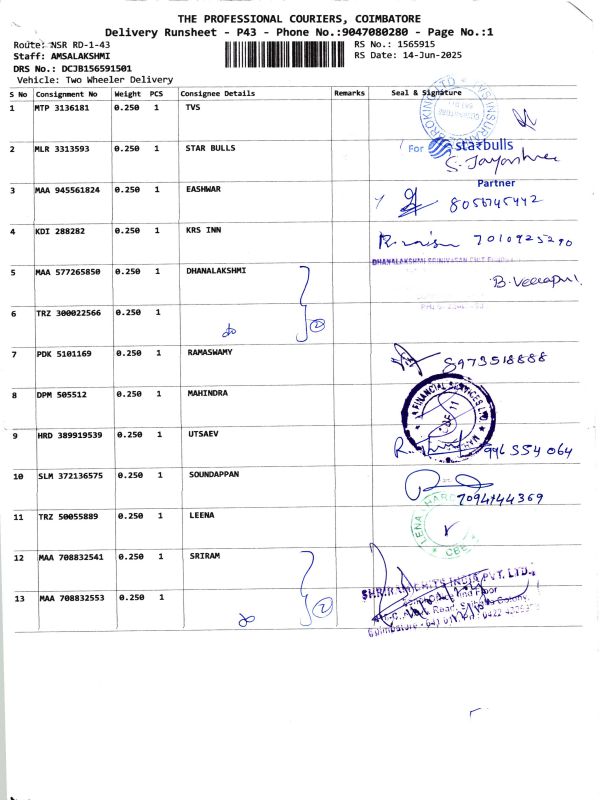 THE PROFESSIONAL COURIERS, COIMBATORE
Delivery Runsheet - P43 - Phone No.:9047080280 - Page No.:1
Route: NSR RD-1-43
RS No.: 1565915
Staff: AMSALAKSHMI
RS Date: 14-Jun-2025
DRS No.: DCJB156591501
Vehicle: Two Wheeler Delivery
S No Consignment No Weight PCS Consignee Details Remarks Seal & Signature
1 MTP 3136181 0.250 1 TVS
2 MLR 3313593 0.250 1 STAR BULLS
For starbulls
S. Jayashree
Partner
3 MAA 945561824 0.250 1 EASHWAR
8056745442
4 KDI 288282 0.250 1 KRS INN
7010925290
5 MAA 577265850 0.250 1 DHANALAKSHMI
DHANALAKSHMI SRINIVASAN
6 TRZ 300022566 0.250 1
2
7 PDK 5101169 0.250 1 RAMASWAMY
8973518888
8 DPM 505512 0.250 1 MAHINDRA
FINANCIAL SERVICES LTD
CBE 11
9 HRD 389919539 0.250 1 UTSAEV
994 554 064
10 SLM 372136575 0.250 1 SOUNDAPPAN
7094144369
11 TRZ 50055889 0.250 1 LEENA
CBE
12 MAA 708832541 0.250 1 SRIRAM
SHRIRAM CHITS INDIA PVT. LTD.,
13 MAA 708832553 0.250 1
2